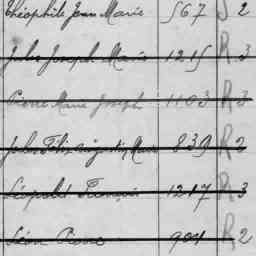 Théophile Jean Marie 567 S 2
Jules Joseph Marie 1215 R 3
Pierre Marie Joseph 1103 R 3
Jules Félix Augustin Marie 839 R 3
Léopold François 1217 R 3
Léon Pierre 904 R 2